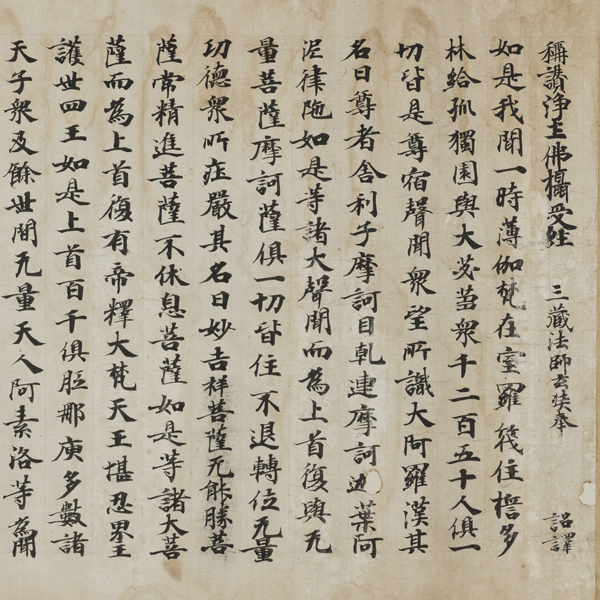 稱讚淨土佛攝受經 三藏法師玄奘奉 詔譯
如是我聞一時薄伽梵在室羅筏住誓多
林給孤獨園與大苾芻眾千二百五十人俱一
切皆是尊宿聲聞眾望所識大阿羅漢其
名曰尊者舍利子摩訶目乾連摩訶迦葉阿
泥律陁如是等諸大聲聞而為上首復與无
量菩薩摩訶薩俱一切皆住不退轉位无量
功德眾所庄嚴其名曰妙吉祥菩薩无能勝菩
薩常精進菩薩不休息菩薩如是等諸大菩
薩而為上首復有帝釋大梵天王堪忍界主
護世四王如是上首百千俱胝那庾多數諸
天子眾及餘世間无量天人阿素洛等為聞